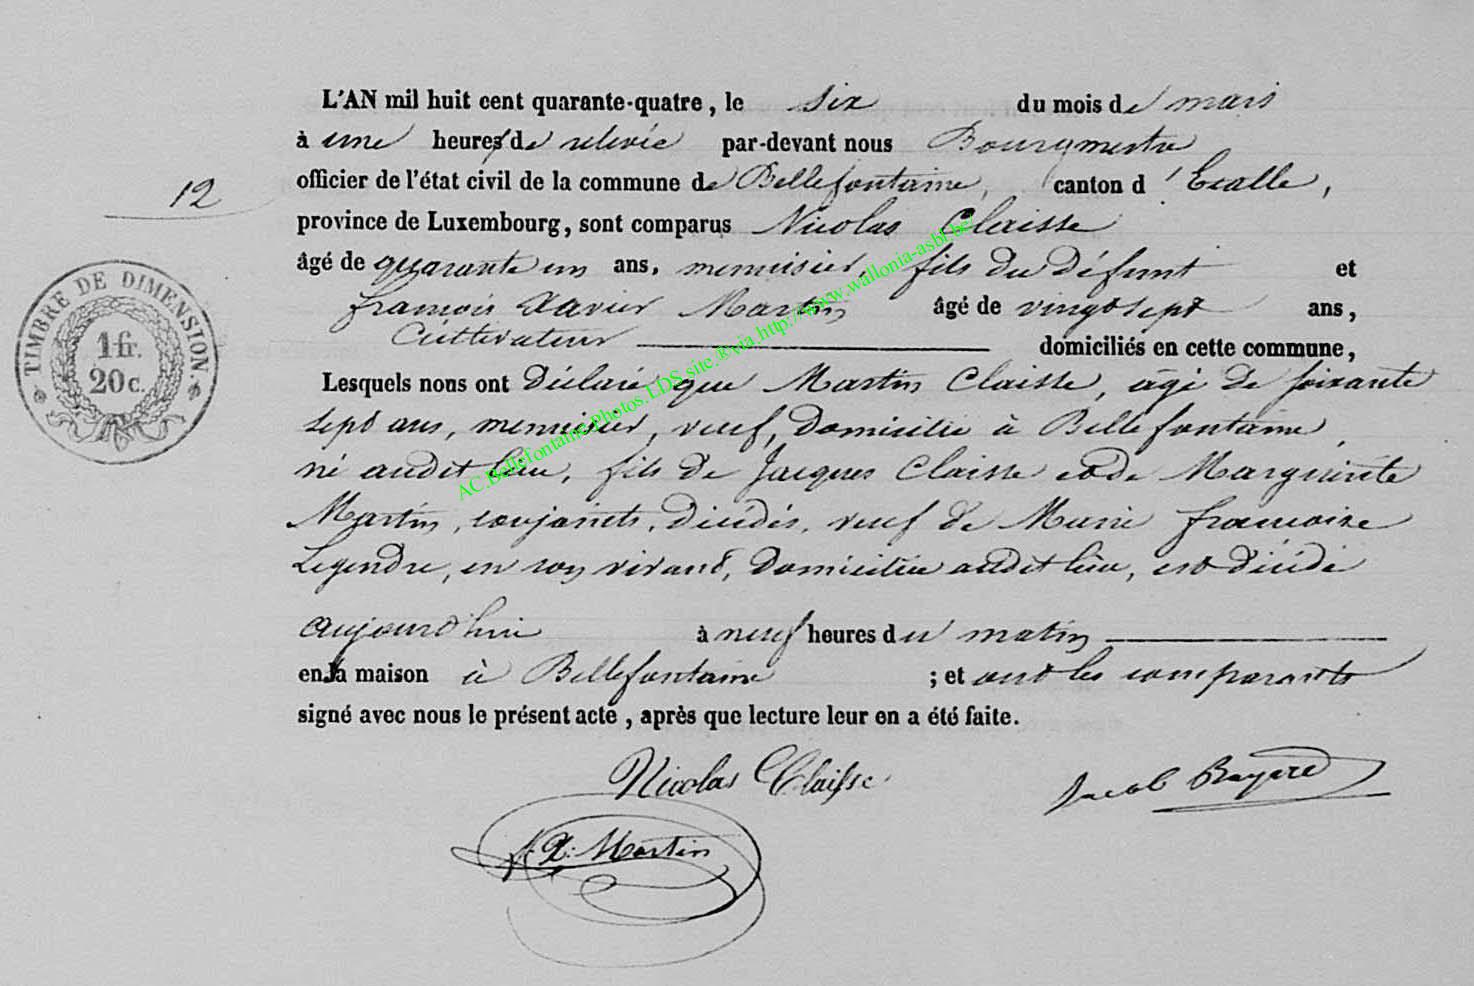 L'AN mil huit cent quarante-quatre, le six du mois de mars
à une heures de relevée par-devant nous Bourgmestre
12
officier de l'état civil de la commune de Bellefontaine, canton d'Etalle,
province de Luxembourg, sont comparus Nicolas Claisse
âgé de quarante un ans, menuisier, fils du défunt et
françois Xavier Martin âgé de vingt sept ans,
Cultivateur domiciliés en cette commune,
Lesquels nous ont Déclaré que Martin Claisse, âgé de soixante
sept ans, menuisier, veuf, Domicilié à Bellefontaine,
né audit lieu, fils de Jacques Claisse et de Marguerite
Martin, conjoints, décédés, veuf de Marie françoise
Legendre, en son vivant, Domiciliée audit lieu, est décédé
aujourd'hui à neuf heures du matin
en la maison à Bellefontaine ; et ont les comparants
signé avec nous le présent acte, après que lecture leur en a été faite.
Nicolas Claisse
Jacob Bayard
f. X: Martin
TIMBRE DE DIMENSION
1 fr.
20 c.
AC.Bellefontaine.Photos.LDS site.®via.http://www.wallonia-asbl.be/